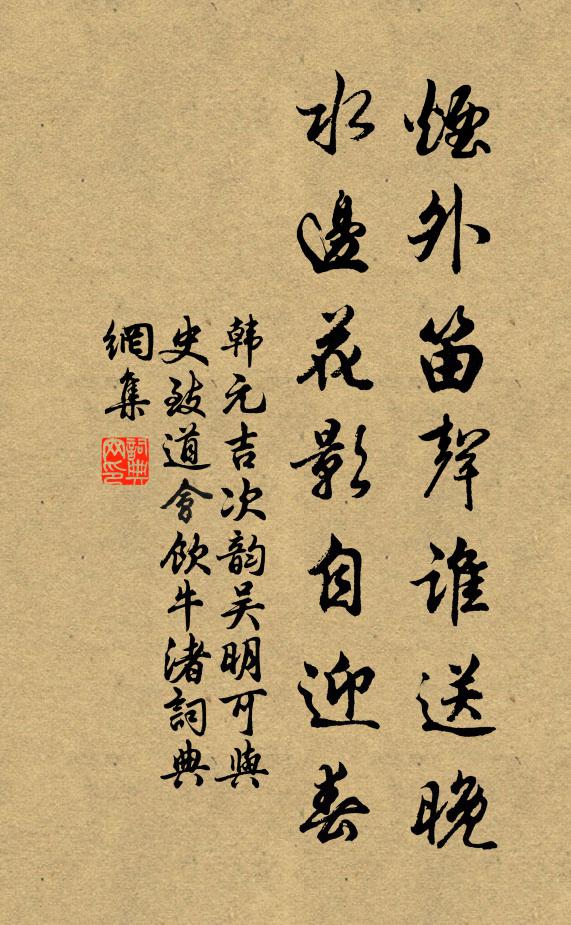 煙外笛聲誰送晚
水邊花影自迎春
韩元吉次韵吴明可與
史致道會飲牛渚詞典
網集
詞典网印